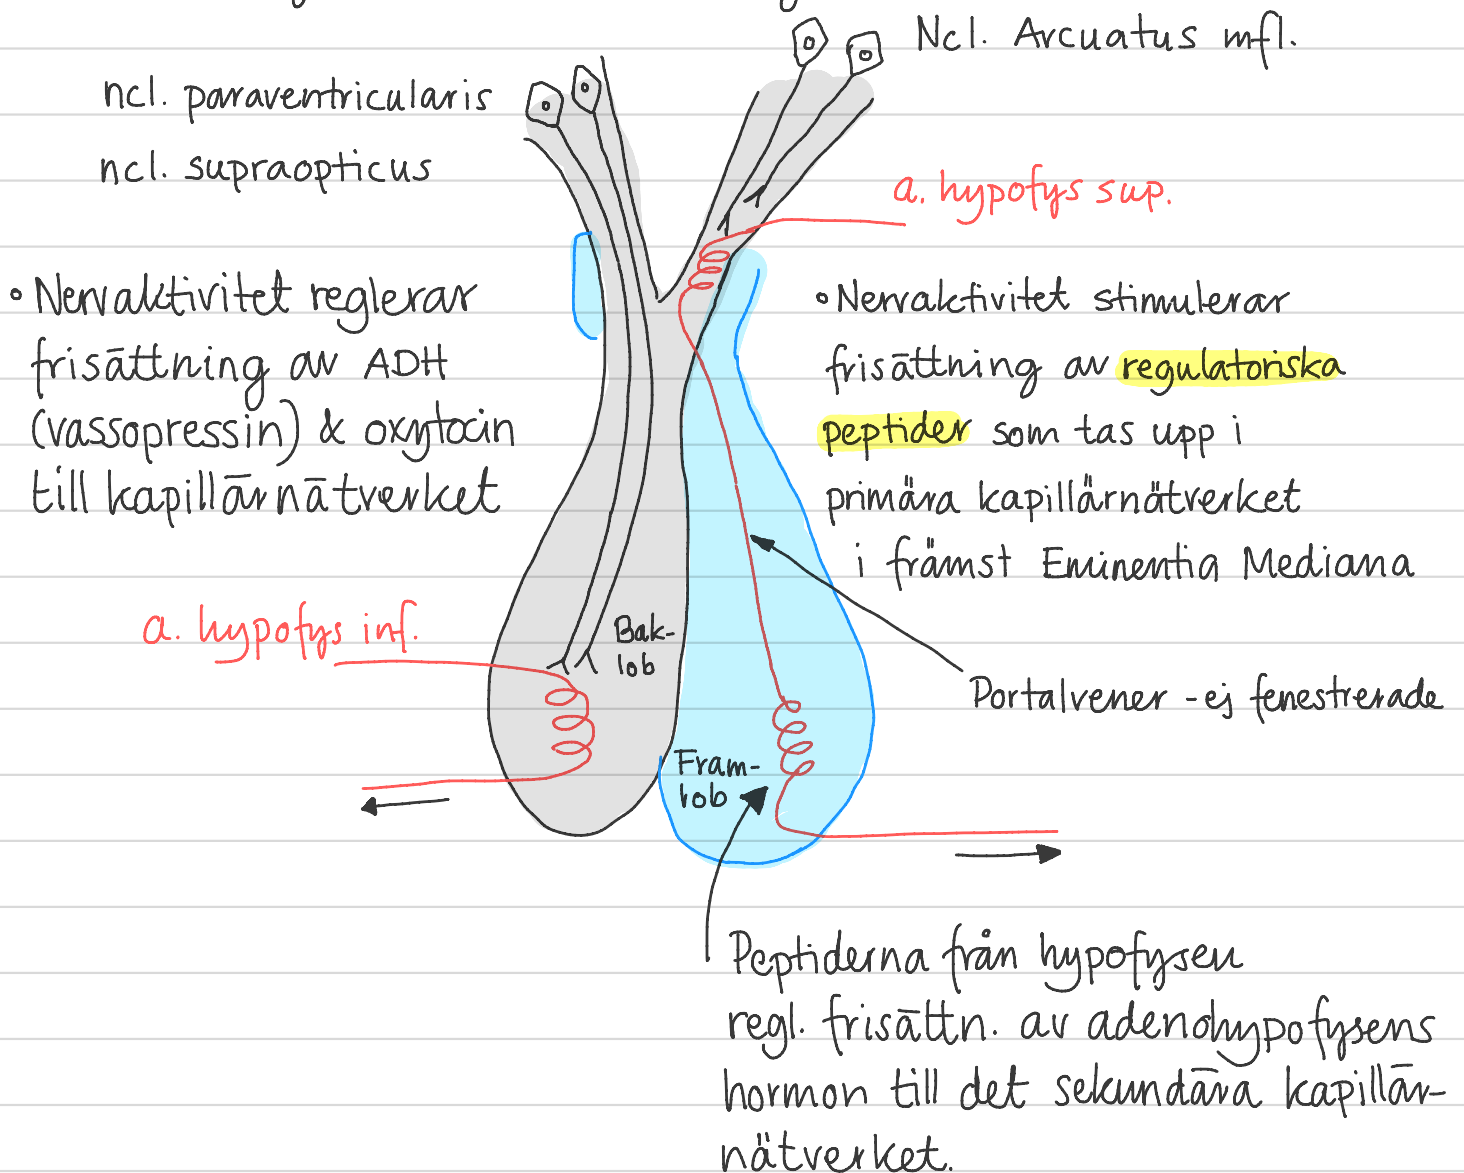 Ncl. Arcuatus mfl.
ncl. paraventricularis
ncl. supraopticus
a. hypofys sup.
• Nervaktivitet reglerar
frisättning av ADH
(vassopressin) & oxytocin
till kapillärnätverket
• Nervaktivitet stimulerar
frisättning av regulatoriska
peptider som tas upp i
primära kapillärnätverket
i främst Eminentia Mediana
a. hypofys inf.
Bak-
lob
Portalvener - ej fenestrerade
Fram-
lob
Peptiderna från hypofysen
regl. frisättn. av adenohypofysens
hormon till det sekundära kapillär-
nätverket.